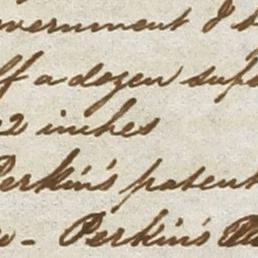 overnment I h
ff a dozen sup
2 inches
Perkin's patent
- Perkin's